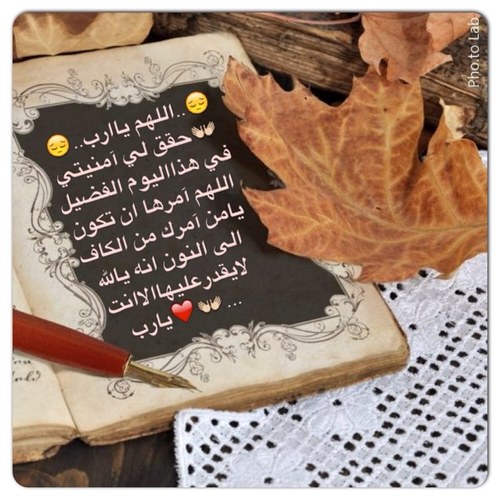 😔..اللهم ياارب..😔
👐حقق لي آمنيتي
في هذااليوم الفضيل
اللهم آمرها ان تكون
يامن آمرك من الكاف
الى النون انه يالله
لايقدرعليهاالاانت
... 👐❤يارب
Pho.to Lab